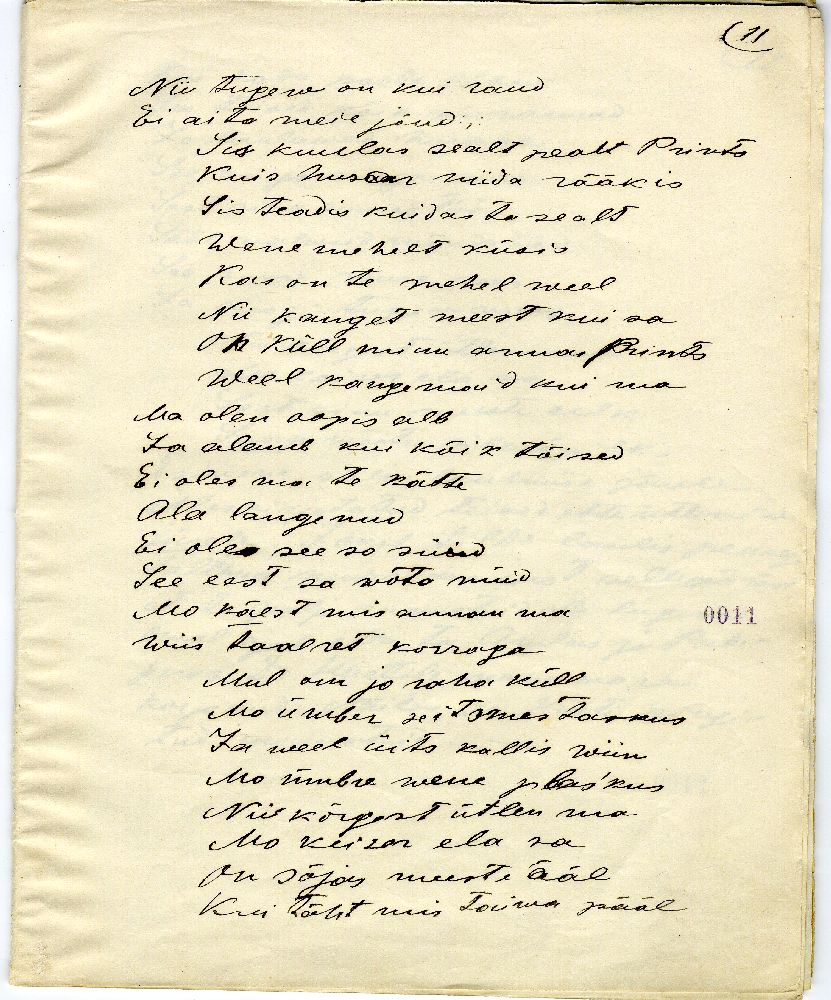 11
Nii tugew on kui raud
Ei aita meie jõud;
Sis kuulas sealt pealt Prints
Kuis husaar niida rääkis
Sis teadis kuidas ta sealt
Wene mehelt küsis
Kas on te mehel weel
Nii kanget meest kui sa
Oh küll minu armas Prints
Weel kangemaid kui ma
Ma olen oopis alb
Ja alamb kui kõik tõised
Ei oles ma te kätte
Ala langenud
Ei oles see so süüd
See eest sa wõta nüüd
Mo käest mis annan ma
Wiis Taalret korraga
Mul om jo raha küll
Mo ümber seitsmes Taskus
Ja weel üits kallis wiin
Mo ümbre wene plaskus
Nii kõrgest ütlen ma
Mo keisar ela sa
On sõjas meeste ääl
Kui täht mis taiwa pääl
0011